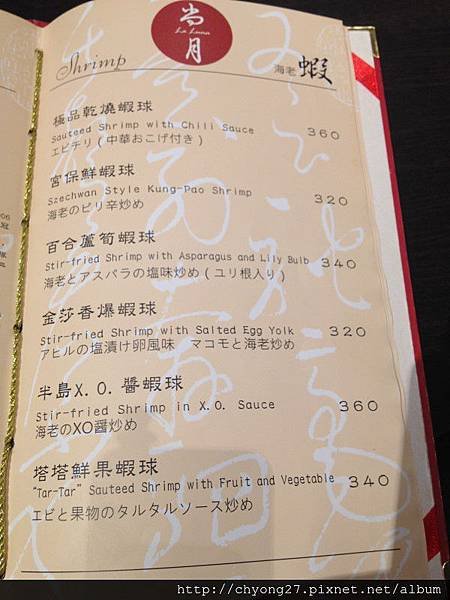 尚月
La Luna
Shrimp
海老 蝦
極品乾燒蝦球
Sauteed Shrimp with Chili Sauce 360
エビチリ(中華おこげ付き)
宮保鮮蝦球
Szechwan Style Kung-Pao Shrimp 320
海老のピリ辛炒め
百合蘆筍蝦球
Stir-fried Shrimp with Asparagus and Lily Bulb 340
海老とアスパラの塩味炒め(ユリ根入り)
金莎香爆蝦球
Stir-fried Shrimp with Salted Egg Yolk 320
アヒルの塩漬け卵風味 マコモと海老炒め
半島X.O.醬蝦球
Stir-fried Shrimp in X.O. Sauce 360
海老のXO醤炒め
塔塔鮮果蝦球
"Tar-Tar" Sauteed Shrimp with Fruit and Vegetable 340
エビと果物のタルタルソース炒め
http://chyong27.pixnet.net/album